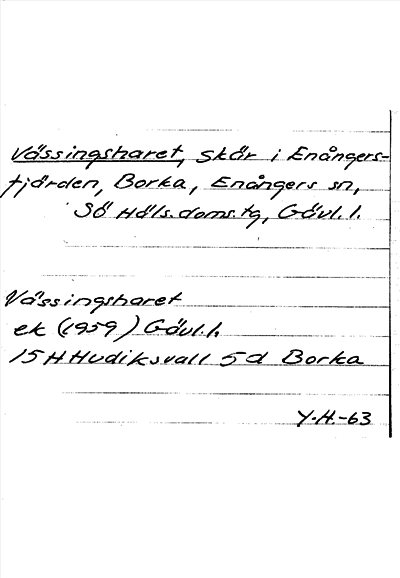 Vässingsharet, skär i Enångers-
fjärden, Borka, Enångers sn,
SÖ Häls. doms. tg, Gävl. l.
Vässingsharet
ek (1959) Gävl. l.
15 H Hudiksvall 5d Borka
Y.H.-63